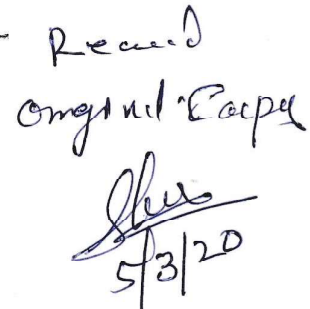 Received
Original Copy
5/3/20